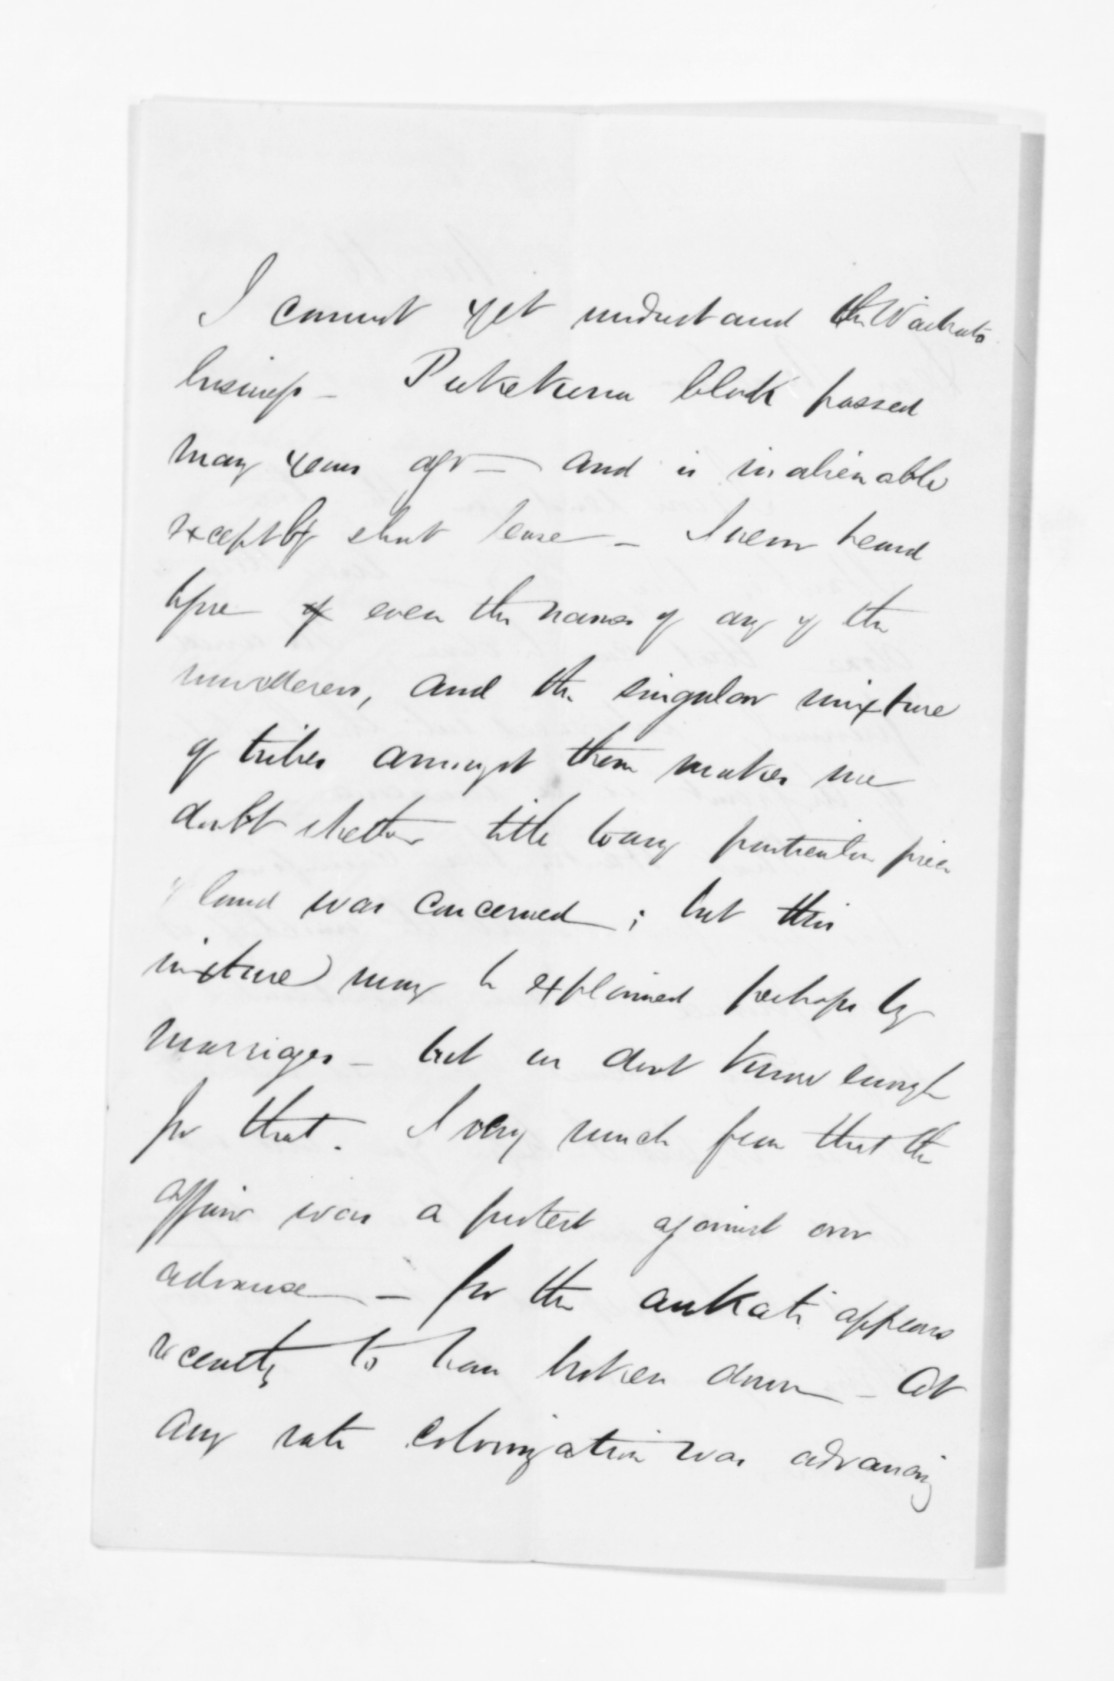 I cannot yet understand the Waikato
business - Pukekura block passed
many years ago - and is inalienable
except by short lease - I never heard
before of even the names of any of the
murderers, and the singular mixture
of tribes amongst them makes me
doubt whether title to any particular piece
of land was concerned; but this
mixture may be explained perhaps by
marriages - but we dont know enough
for that. I very much fear that the
affair was a protest against our
advance - for the aukati appears
recently to have broken down - At
any rate colonization was advancing